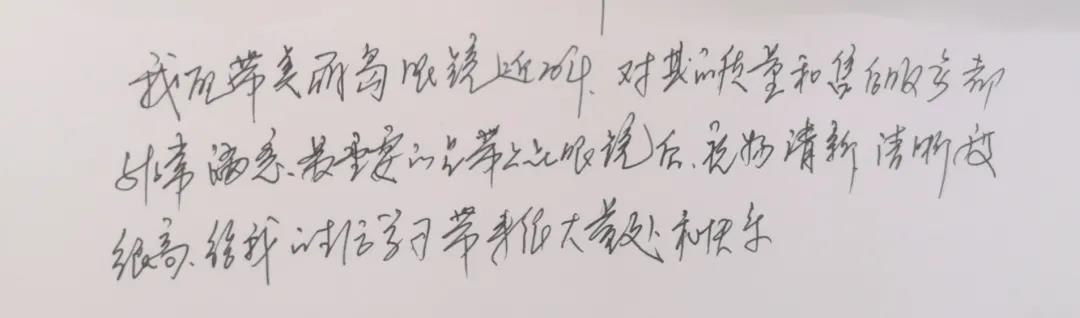 我配带美丽岛眼镜近20年、对其的质量和售后服务都
非常满意、最重要的是带上此眼镜后、视物清新清晰度
很高、给我的生活学习带来很大益处和快乐